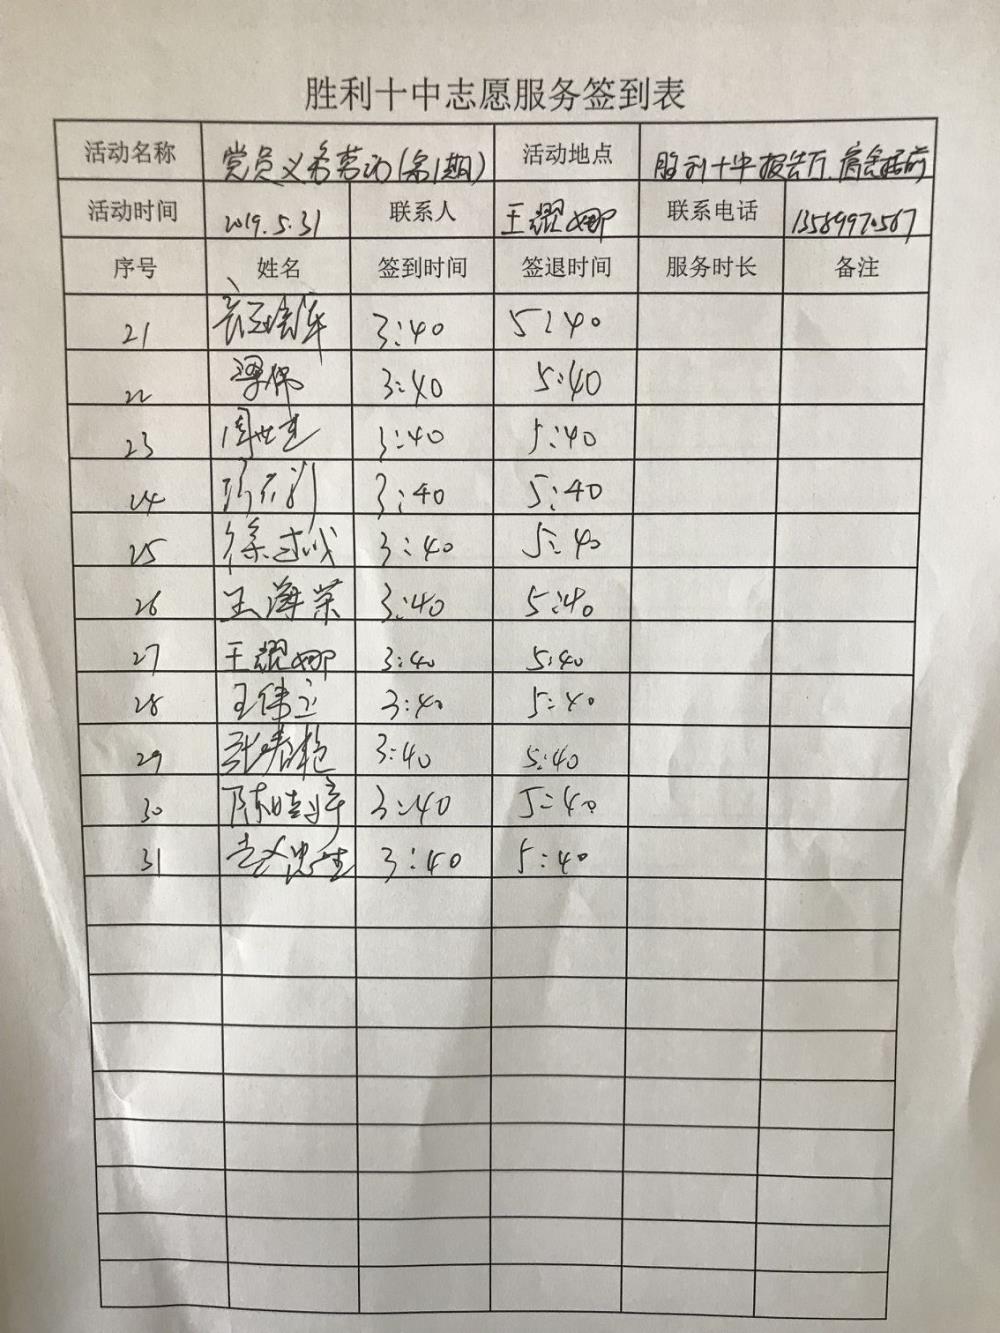 胜利十中志愿服务签到表
活动名称 党员义务劳动(第1期) 活动地点 胜利十中报告厅.宿舍楼前
活动时间 2019.5.31 联系人 王耀娜 联系电话 13589970567
序号 姓名 签到时间 签退时间 服务时长 备注
21 3:40 5:40
22 梁伟 3:40 5:40
23 周世建 3:40 5:40
24 3:40 5:40
25 徐 3:40 5:40
26 王海荣 3:40 5:40
27 王耀娜 3:40 5:40
28 王伟立 3:40 5:40
29 张春艳 3:40 5:40
30 陈晓 3:40 5:40
31 3:40 5:40